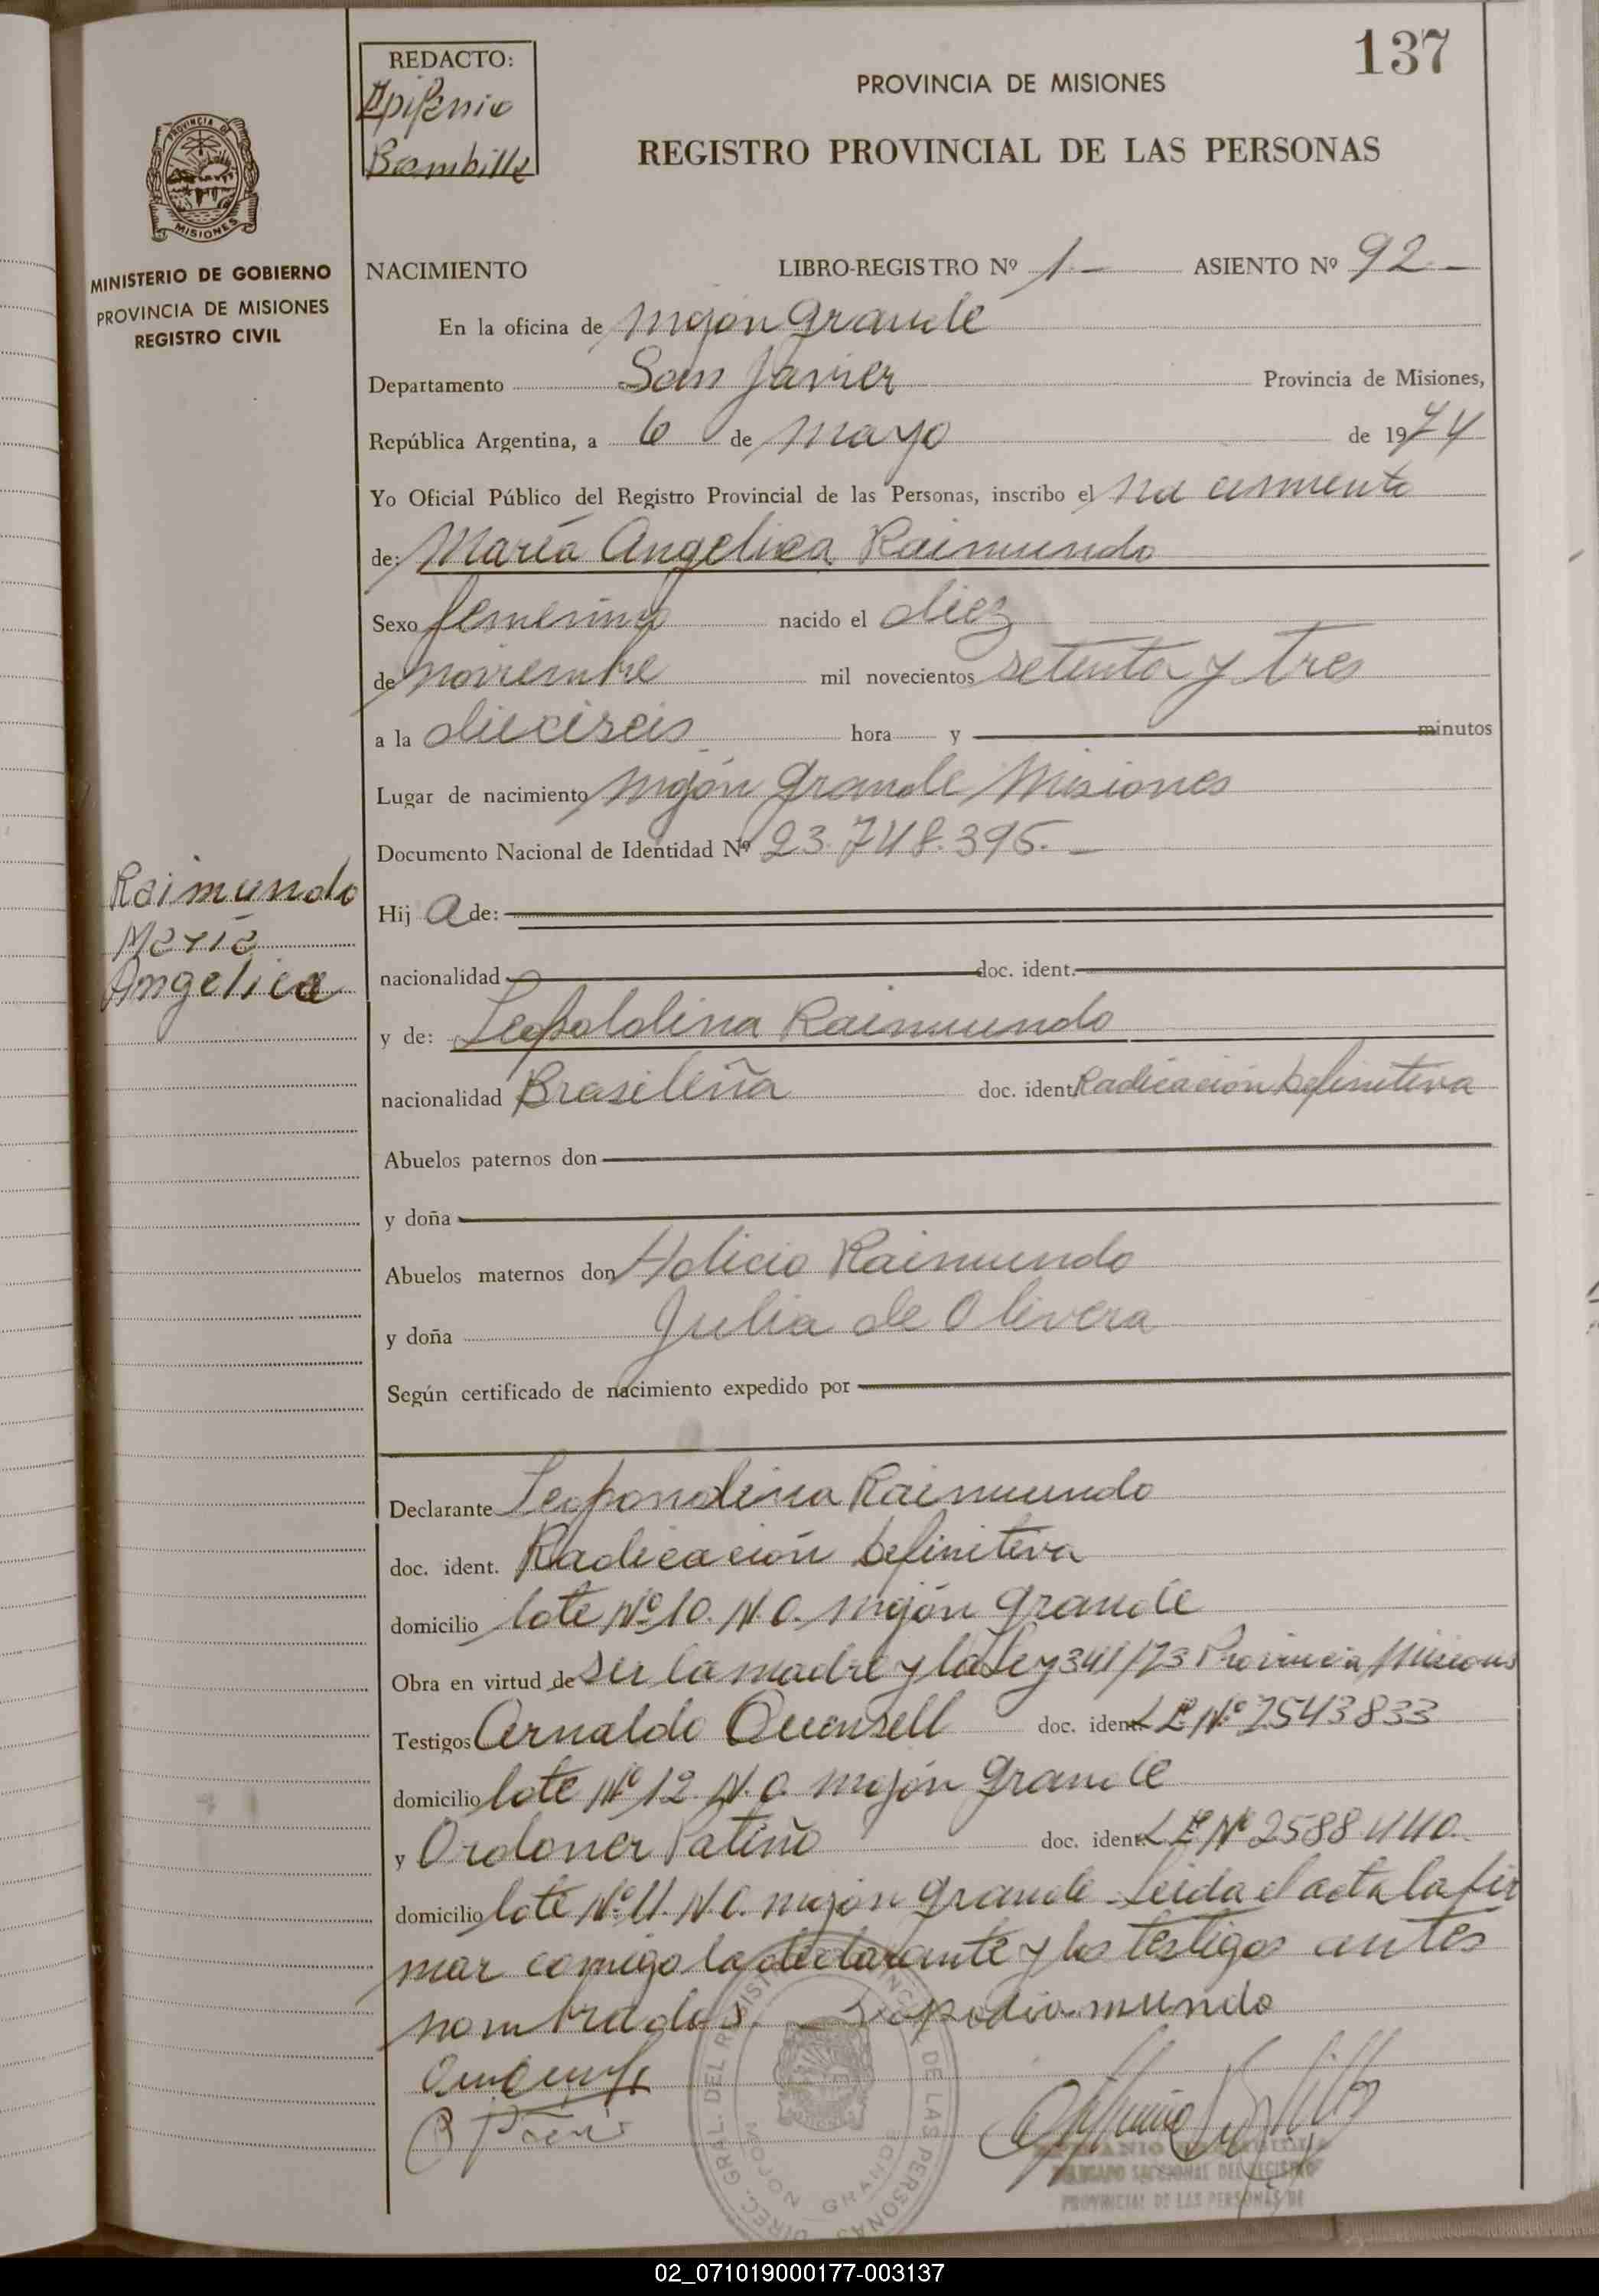 137
REDACTO:
Epifenio
Bambille
PROVINCIA DE MISIONES
REGISTRO PROVINCIAL DE LAS PERSONAS
PROVINCIA DE
MISIONES
MINISTERIO DE GOBIERNO
PROVINCIA DE MISIONES
REGISTRO CIVIL
NACIMIENTO LIBRO-REGISTRO Nº 1 — ASIENTO Nº 92 —
En la oficina de Mojón Grande
Departamento San Javier Provincia de Misiones,
República Argentina, a 6 de Mayo de 1974
Yo Oficial Público del Registro Provincial de las Personas, inscribo el nacimiento
de: María Angelica Raimundo
Sexo femenino nacido el diez
de noviembre mil novecientos setenta y tres
a la dieciseis hora y minutos
Lugar de nacimiento Mojón Grande Misiones
Documento Nacional de Identidad Nº 23.748.395. —
Raimundo
María
Angelica
Hij a de:
nacionalidad doc. ident.
y de: Leopoldina Raimundo
nacionalidad Brasileña doc. ident. Radicación Definitiva
Abuelos paternos don
y doña
Abuelos maternos don Holicio Raimundo
y doña Julia de Olivera
Según certificado de nacimiento expedido por
Declarante Leopondina Raimundo
doc. ident. Radicación Definitiva
domicilio lote Nº 10. N.O. Mojón Grande
Obra en virtud de ser la madre y la Ley 341/73 Provincia Misiones
Testigos Arnaldo Quensell doc. ident. L.E. Nº 7543833
domicilio lote Nº 12. N.O. Mojón Grande
y Ordoner Patiño doc. ident. L.E. Nº 2588440.
domicilio lote Nº 11. N.O. Mojón Grande Leida el acta la fir
mar comigo la declarante y los testigos antes
nombrados.
DIREC. GRAL. DEL REGISTRO PROVINCIAL DE LAS PERSONAS
MOJON GRANDE
DELEGADO SECCIONAL DEL REGISTRO
PROVINCIAL DE LAS PERSONAS DE
02_071019000177-003137